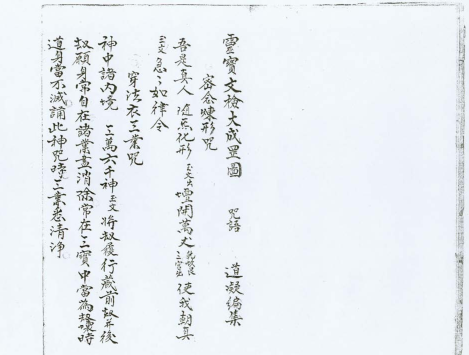 靈寶文檢大成罡圖 咒語 道凝編集
密念煉形咒
吾是真人 隨炁化形 玉文出 壇開萬丈 三官 使我朝真
玉文 急々如律令
穿法衣三業咒
神中諸內境 三萬六千神 玉文 將叔履行藏前叔并後
叔願身常自在諸業盡消除常在三寶中當為叔壞時
道身當不滅誦此神咒時三業悉清淨